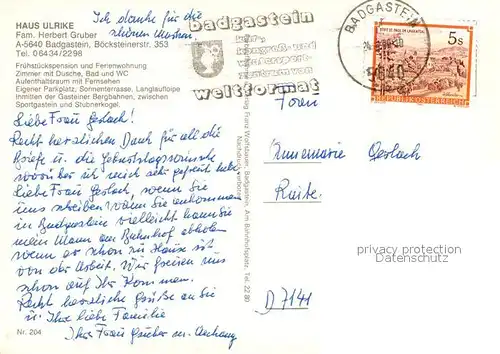 HAUS ULRIKE
Fam. Herbert Gruber
A-5640 Badgastein, Böcksteinerstr. 353
Tel. 06434/2296
Frühstückspension und Ferienwohnung
Zimmer mit Dusche, Bad und WC
Aufenthaltsraum mit Fernsehen
Eigener Parkplatz, Sonnenterrasse, Langlaufloipe
Inmitten der Gasteiner Bergbahnen, zwischen
Sportgastein und Stubnerkogel.
Ich danke für die
schönen
Liebe Frau Gerlach!
Recht herzlichen Dank für all die
Briefe u. die Geburtstagswünsche
worüber ich mich sehr gefreut habe
Liebe Frau Gerlach, wenn Sie
uns schreiben wann Sie ankommen
in Badgastein vielleicht kann Sie
mein Mann am Bahnhof abholen
wenn er schon zu Hause ist
von der Arbeit. Wir freuen uns
schon auf Ihr Kommen.
Recht herzliche Grüße an Sie
u. Ihre liebe Familie
Ihre Frau Gruber m. Anhang
Nr. 204
badgastein
kur,
kongreß- und
wintersport-
zentrum von
weltformat
BADGASTEIN
5640
5s
REPUBLIK ÖSTERREICH
Franz Wolfsbauer, Badgastein, Am Bahnhofplatz, Tel. 22 80
Nachdruck verboten
Frau
Annemarie Gerlach
D 7141
privacy protection
Datenschutz